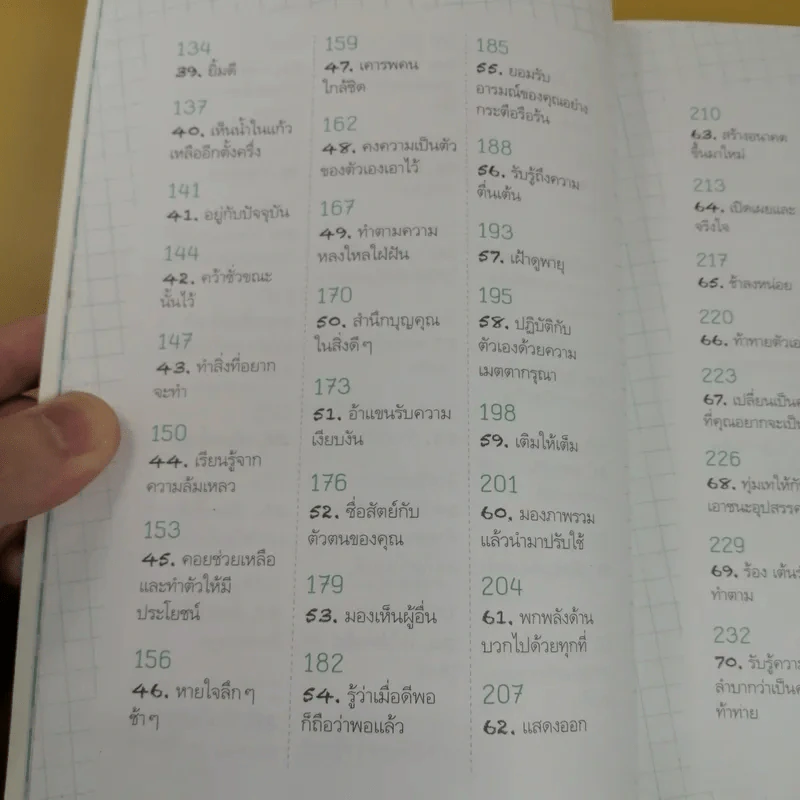 134
39. ยิ้มดี
137
40. เห็นน้ำในแก้ว
เหลืออีกตั้งครึ่ง
141
41. อยู่กับปัจจุบัน
144
42. คว้าชั่วขณะ
นั้นไว้
147
43. ทำสิ่งที่อยาก
จะทำ
150
44. เรียนรู้จาก
ความล้มเหลว
153
45. คอยช่วยเหลือ
และทำตัวให้มี
ประโยชน์
156
46. หายใจลึกๆ
ช้าๆ
159
47. เคารพคน
ใกล้ชิด
162
48. คงความเป็นตัว
ของตัวเองเอาไว้
167
49. ทำตามความ
หลงใหลใฝ่ฝัน
170
50. สำนึกบุญคุณ
ในสิ่งดีๆ
173
51. อ้าแขนรับความ
เงียบงัน
176
52. ซื่อสัตย์กับ
ตัวตนของคุณ
179
53. มองเห็นผู้อื่น
182
54. รู้ว่าเมื่อดีพอ
ก็ถือว่าพอแล้ว
185
55. ยอมรับ
อารมณ์ของคุณอย่าง
กระตือรือร้น
188
56. รับรู้ถึงความ
ตื่นเต้น
193
57. เฝ้าดูพายุ
195
58. ปฏิบัติกับ
ตัวเองด้วยความ
เมตตากรุณา
198
59. เติมให้เต็ม
201
60. มองภาพรวม
แล้วนำมาปรับใช้
204
61. พกพลังด้าน
บวกไปด้วยทุกที่
207
62. แสดงออก
210
63. สร้างอนาคต
ขึ้นมาใหม่
213
64. เปิดเผยและ
จริงใจ
217
65. ช้าลงหน่อย
220
66. ท้าทายตัวเอ
223
67. เปลี่ยนเป็น
ที่คุณอยากจะเป็
226
68. ทุ่มเทให้กั
เอาชนะอุปสรร
229
69. ร้อง เต้น
ทำตาม
232
70. รับรู้ควา
ลำบากว่าเป็น
ท้าทาย